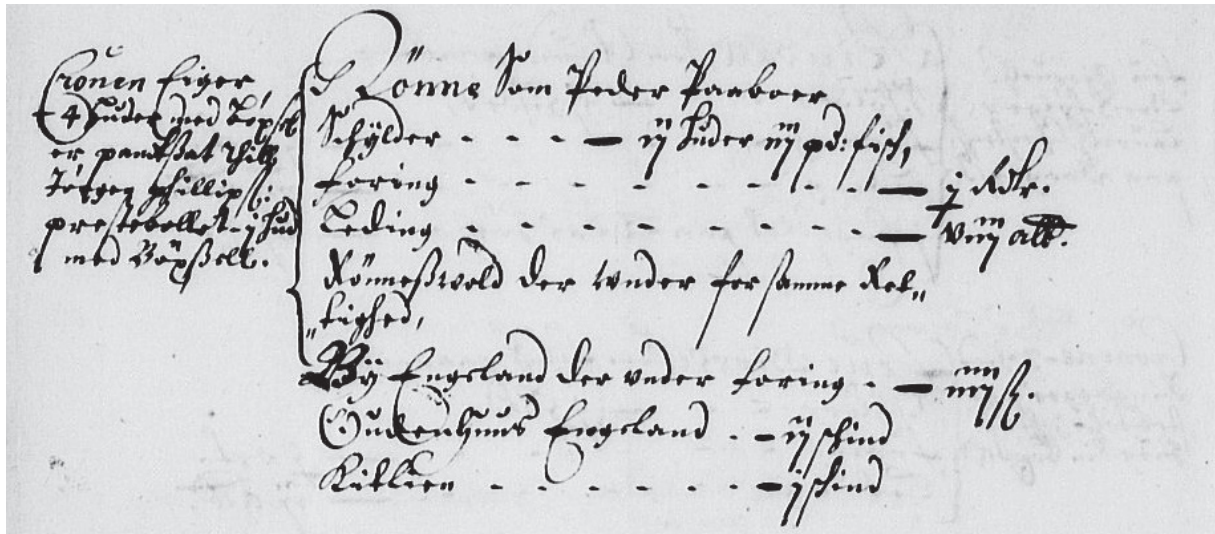 Cronen Eiger
4 Huder med Böxsel
er pandtßat Thill
Jörgen Phillipß:
prestebollet - j hud
med Böxßell.
Rönne Som Peder Paaboer
Schÿlder - - - - ij huder iij pd: fisch,
foring - - - - - - - - - j Rdr.
Leding - - - - - - - - - viij alb.
Rönneßwold der wnder for samme Ret„
„tighed,
Bÿ Engeland der vnder foring - - ß.
Engeland - - ij schind
Kitlien - - - - - - - j schind